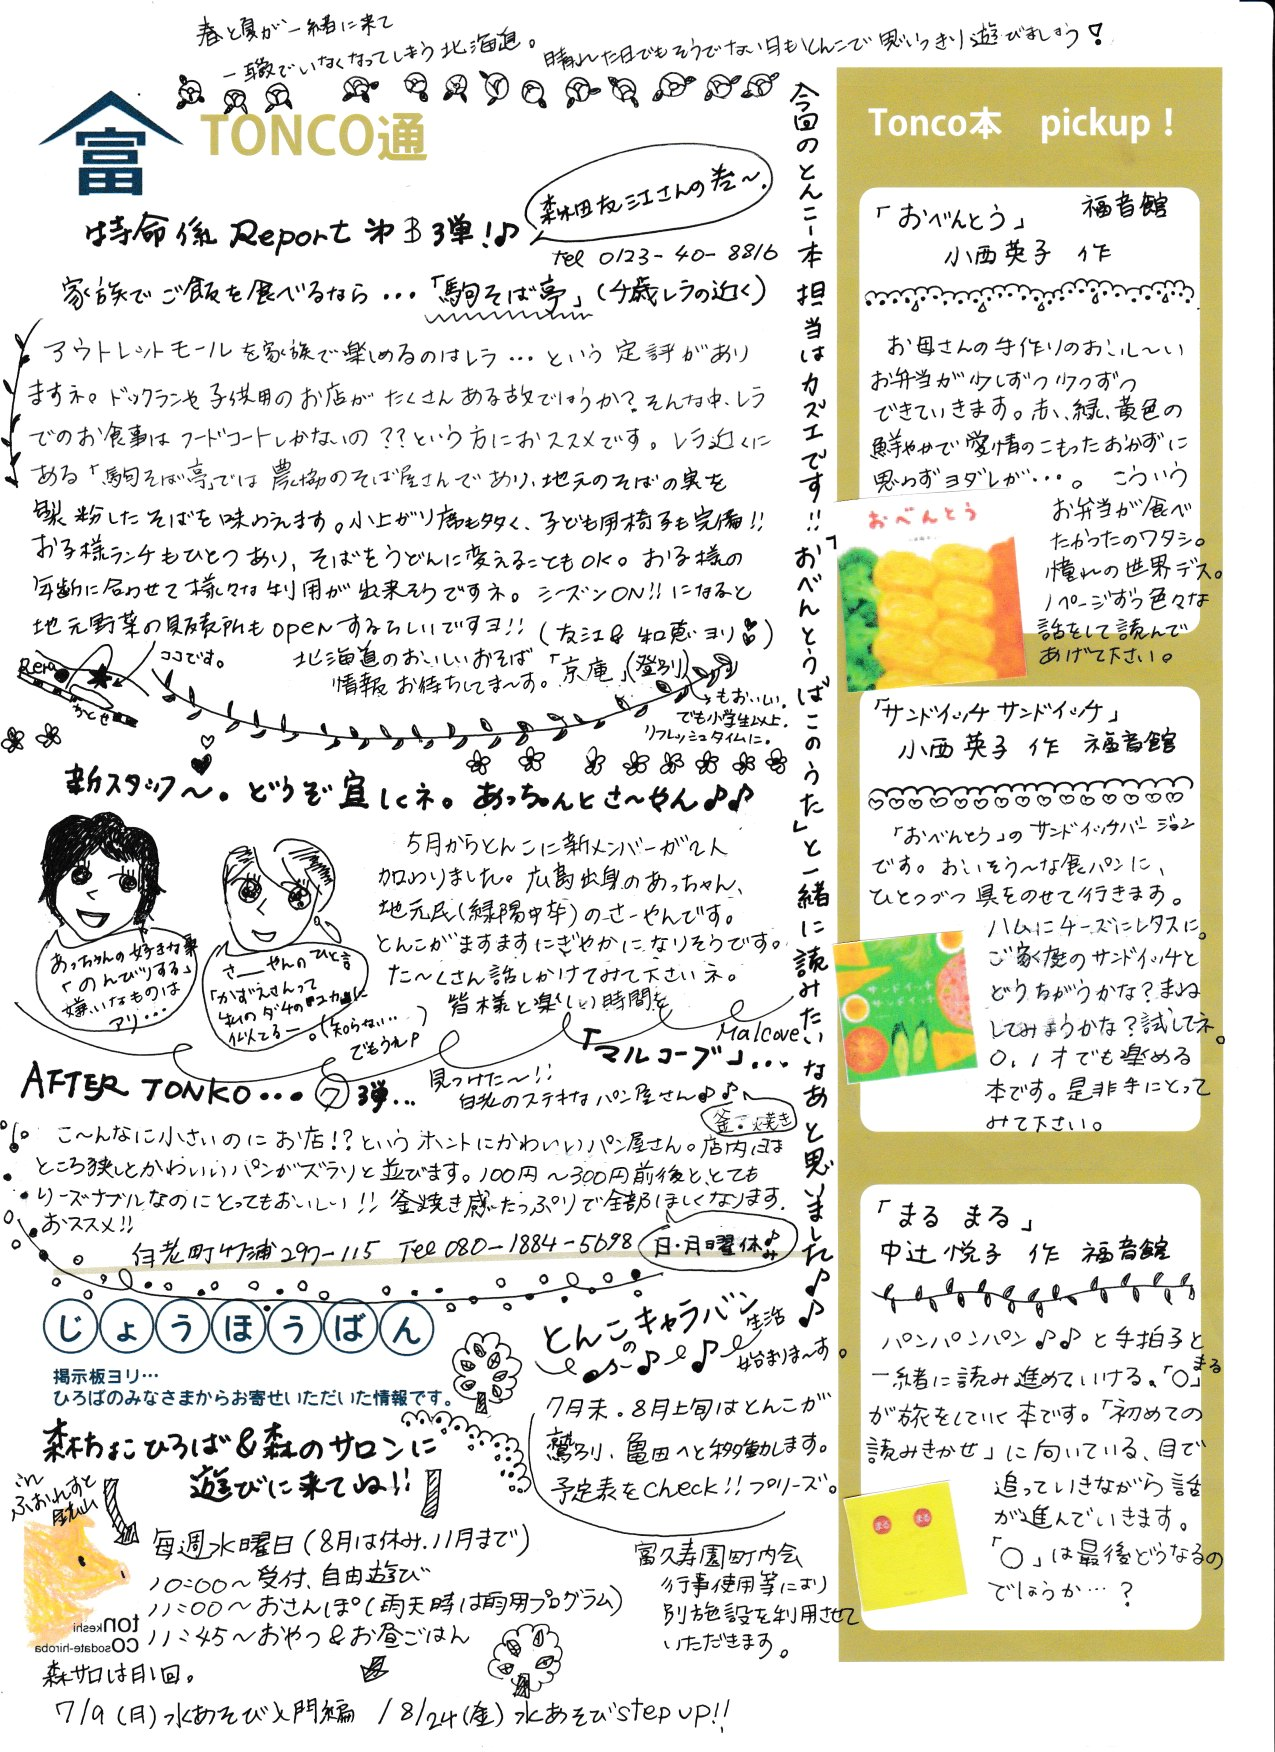 春と夏が一緒に来て
一瞬でいなくなってしまう北海道。
晴れた日でもそうでない日もとんこで思いっきり遊びましょう!
富
TONCO通
特命係 Report 第3弾!♪
森田友江さんの巻〜.
tel 0123-40-8816
家族でご飯を食べるなら…「駒そば亭」(千歳レラの近く)
アウトレットモールを家族で楽しめるのはレラ…という定評があり
ますネ。ドックランや子供用のお店がたくさんある故でしょうか?そんな中、レラ
でのお食事はフードコートしかないの??という方におススメです。レラ近くに
ある「駒そば亭」では農協のそば屋さんであり、地元のそばの実を
製粉したそばを味わえます。小上がり席も多く、子ども用椅子も完備!!
お子様ランチもひとつあり、そばをうどんに変えることもOK。お子様の
年齢に合わせて様々な利用が出来そうですネ。シーズンON!!になると
地元野菜の販売所もopenするらしいですヨ!!(友江&和恵ヨリ)
Rera
ココです。
ちとせ
北海道のおいしいおそば
情報お待ちしてま〜す。
「京庵」(登別)
もおいしい。
でも小学生以上.
リフレッシュタイムに。
新スタッフ〜。どうぞ宜しくネ。あっちゃんとさ〜やん♪♪
5月からとんこに新メンバーが2人
加わりました。広島出身のあっちゃん、
地元民(緑陽中卒)のさーやんです。
とんこがますますにぎやかになりそうです。
た〜くさん話しかけてみて下さいネ。
皆様と楽しい時間を
あっちゃんの好きな事
「のんびりする」
嫌いなものは
アリ…
さ__やんのひと言
「かずえさんって
私のダチのユカに
似てるー。(知らない…
でもうれし)
AFTER TONKO…⑦弾…
見つけた〜!!
白老のステキなパン屋さん♪♪
「マルコーブ」…
Malcove
釜・焼き
こ〜んなに小さいのにお店!?というホントにかわいいパン屋さん。店内には
ところ狭しとかわいいパンがズラリと並びます。100円〜300円前後と、とても
リーズナブルなのにとってもおいしい!!釜焼き感たっぷりで全部ほしくなります.
おススメ!!
白老町竹浦297-115 Tel 080-1884-5698
日・月曜休み
じょうほうばん
掲示板ヨリ…
ひろばのみなさまからお寄せいただいた情報です。
森ちょこひろば&森のサロンに
遊びに来てね!!
in
ふぉれすと
鉱山
毎週水曜日(8月は休み.11月まで)
10:00〜受付、自由遊び
11:00〜おさんぽ(雨天時は雨用プログラム)
11:45〜おやつ&お昼ごはん
tonkeshi
cosodate-hiroba
森サロは月1回。
7/9(月)水あそび入門編 / 8/24(金)水あそびstep up!!
とんこキャラバン
の
生活
始まりま〜す。
7月末.8月上旬はとんこが
鷲別、亀田へと移動します。
予定表をcheck!!プリーズ。
富久寿園町内会
行事使用等により
別施設を利用させて
いただきます。
今回のとんこ本担当はカズエです!!「おべんとうばこのうた」と一緒に読みたいなあと思いました♪♪
Tonco本 pickup!
「おべんとう」 福音館
小西英子 作
お母さんの手作りのおいし〜い
お弁当が少しずつ少しずつ
できていきます。赤、緑、黄色の
鮮やかで愛情のこもったおかずに
思わずヨダレが…。こういう
お弁当が食べ
たかったのワタシ。
憧れの世界デス。
1ページずつ色々な
話をして読んで
あげて下さい。
おべんとう
「サンドイッチ サンドイッチ」
小西英子 作 福音館
「おべんとう」のサンドイッチバージョン
です。おいそう〜な食パンに、
ひとつづつ具をのせて行きます。
ハムにチーズにレタスに。
ご家庭のサンドイッチと
どうちがうかな?まね
してみようかな?試してネ。
0,1才でも楽める
本です。是非手にとって
みて下さい。
サンドイッチ
サンドイッチ
「まる まる」
中辻悦子 作 福音館
パンパンパン♪♪と手拍子と
一緒に読み進めていける、「〇」まる
が旅をしていく本です。「初めての
読みきかせ」に向いている、目で
追っていきながら話
が進んでいきます。
「〇」は最後どうなるの
でしょうか…?
まる まる